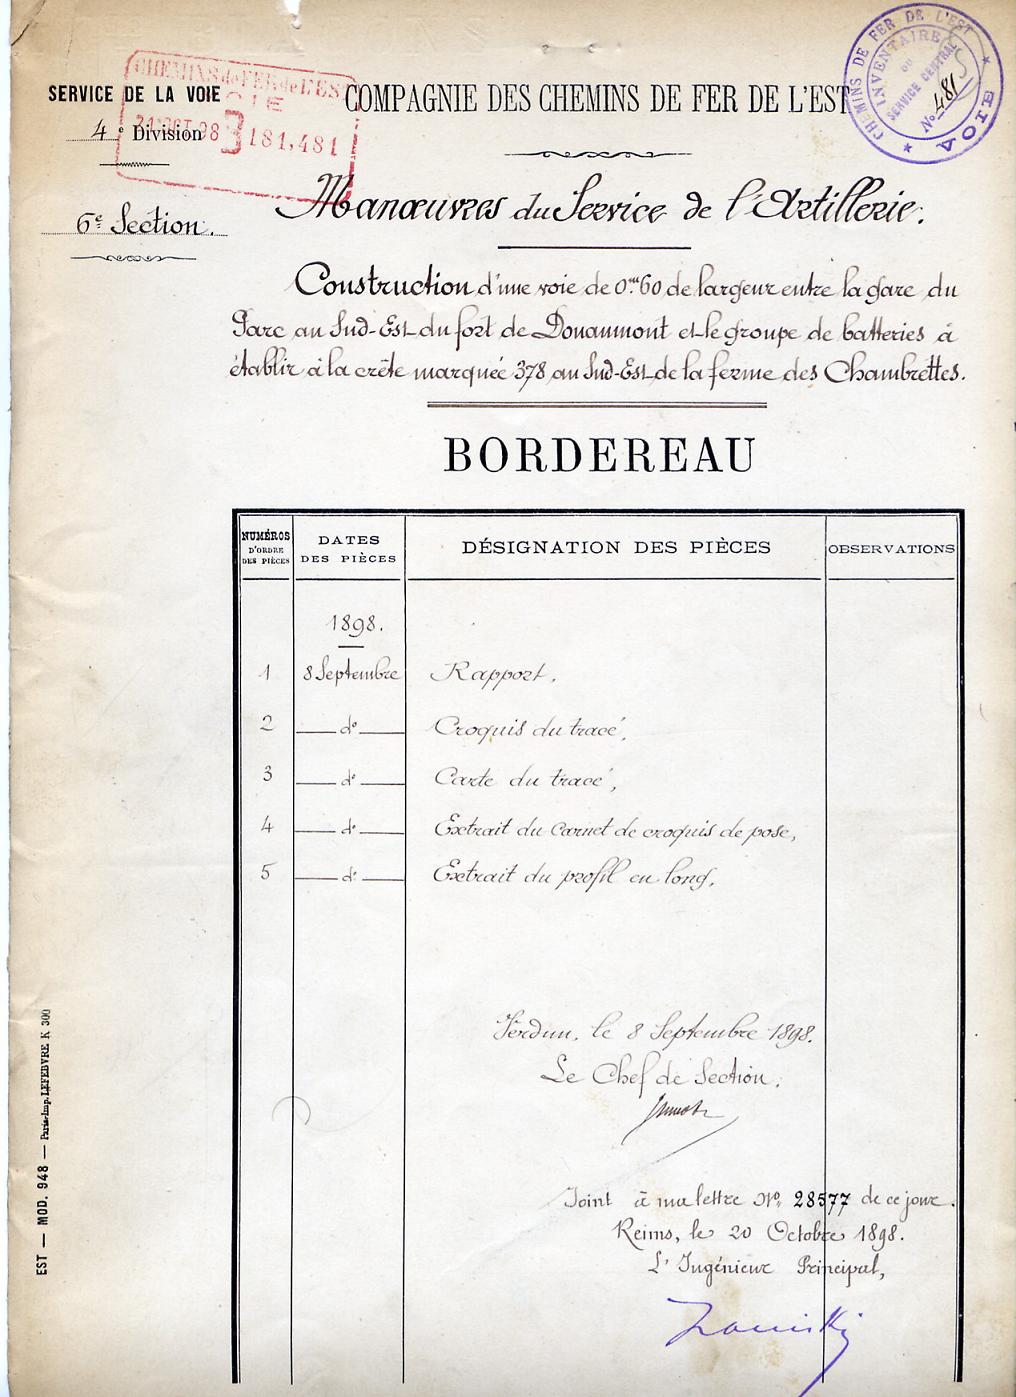 SERVICE DE LA VOIE
4e Division
6e Section.
CHEMINS de FER de L'EST
VOIE
21 OCT 98
181,481
CHEMINS DE FER DE L'EST
VOIE
INVENTAIRE
DU
SERVICE CENTRAL
No 481
COMPAGNIE DES CHEMINS DE FER DE L'EST
Manœuvres du Service de l'Artillerie.
Construction d'une voie de 0m60 de largeur entre la gare du
Parc au Sud-Est du fort de Douaumont et le groupe de batteries à
établir à la crête marquée 378 au Sud-Est de la ferme des Chambrettes.
BORDEREAU
NUMÉROS D'ORDRE DES PIÈCES
DATES DES PIÈCES
DÉSIGNATION DES PIÈCES
OBSERVATIONS
1898.
1 8 Septembre Rapport,
2 — do — Croquis du tracé,
3 — do — Carte du tracé,
4 — do — Extrait du Carnet de croquis de pose,
5 — do — Extrait du profil en long,
Verdun, le 8 Septembre 1898.
Le Chef de Section,
Joint à ma lettre No. 28577 de ce jour.
Reims, le 20 Octobre 1898.
L'Ingénieur Principal,
EST — MOD. 948 — Paris-Imp. LEFEBVRE K 300